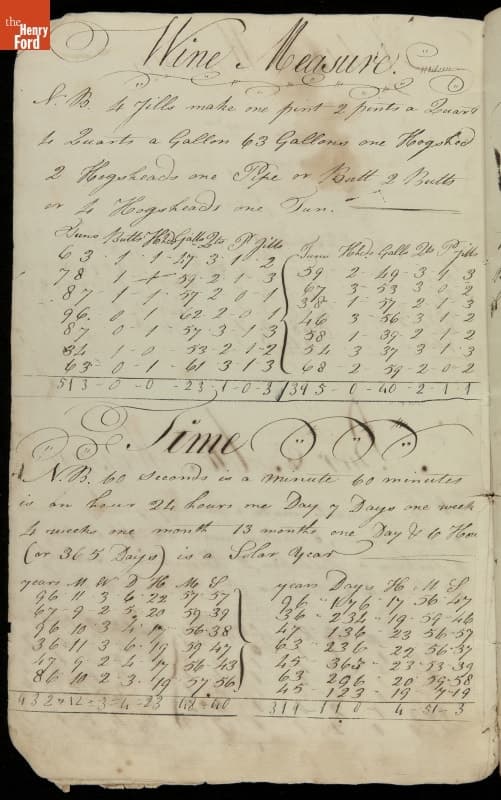 the
Henry
Ford
Wine Measure.
N.B. 4 Jills make one pint 2 pints a Quart
4 Quarts a Gallon 63 Gallons one Hogshed
2 Hogsheads one Pipe or Butt 2 Butts
or 4 Hogsheads one Tun.
Tuns Butts Hhds Galls Qts Pt Jills
63 1 1 47 3 1 2
78 1 1 59 2 1 3
87 1 1 57 2 0 1
96 0 1 62 2 0 1
87 0 1 57 3 1 3
34 1 0 53 2 1 2
63 0 1 61 3 1 3
513 0 0 23 1 0 3
Tuns Hhds Galls Qts Pts Jills
59 2 49 3 1 3
67 3 53 3 0 2
38 1 57 2 1 3
46 3 56 3 1 2
58 1 39 2 1 2
54 3 37 3 1 3
68 2 59 2 0 2
395 0 40 2 1 1
Time
N.B. 60 seconds is a minute 60 minutes
is an hour 24 hours one Day 7 Days one week
4 weeks one month 13 months one Day & 6 Hou
(or 365 Days) is a Solar Year
years M W D H M S
96 11 3 6 22 57 57
67 9 2 5 20 59 39
96 10 3 4 17 56 38
36 11 3 6 19 59 47
47 9 2 4 17 56 43
86 10 2 3 19 57 56
432 12 3 4 23 48 40
years Days H M S
96 176 17 56 47
36 234 19 59 46
47 136 23 56 57
63 236 22 56 37
45 365 23 53 39
63 296 20 59 58
45 123 19 7 19